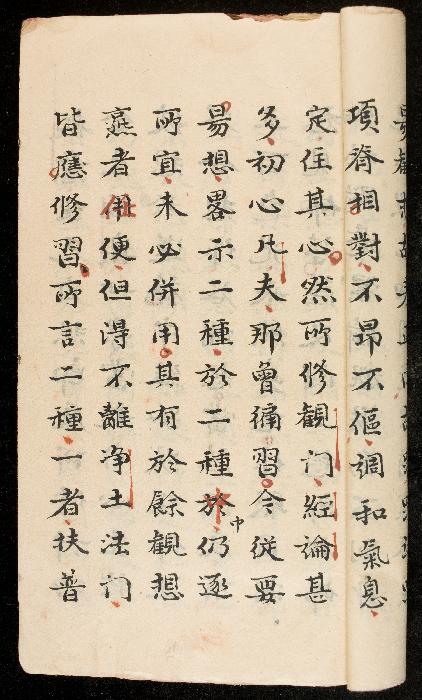 項脊相對不昂不傴調和氣息
定住其心然所修觀門經論甚
多初心凡夫那曾徧習今從要
易想畧示二種於二種於中仍逐
所宜未必併用其有於餘觀想
熟者任便但得不離淨土法門
皆應修習所言二種一者扶普